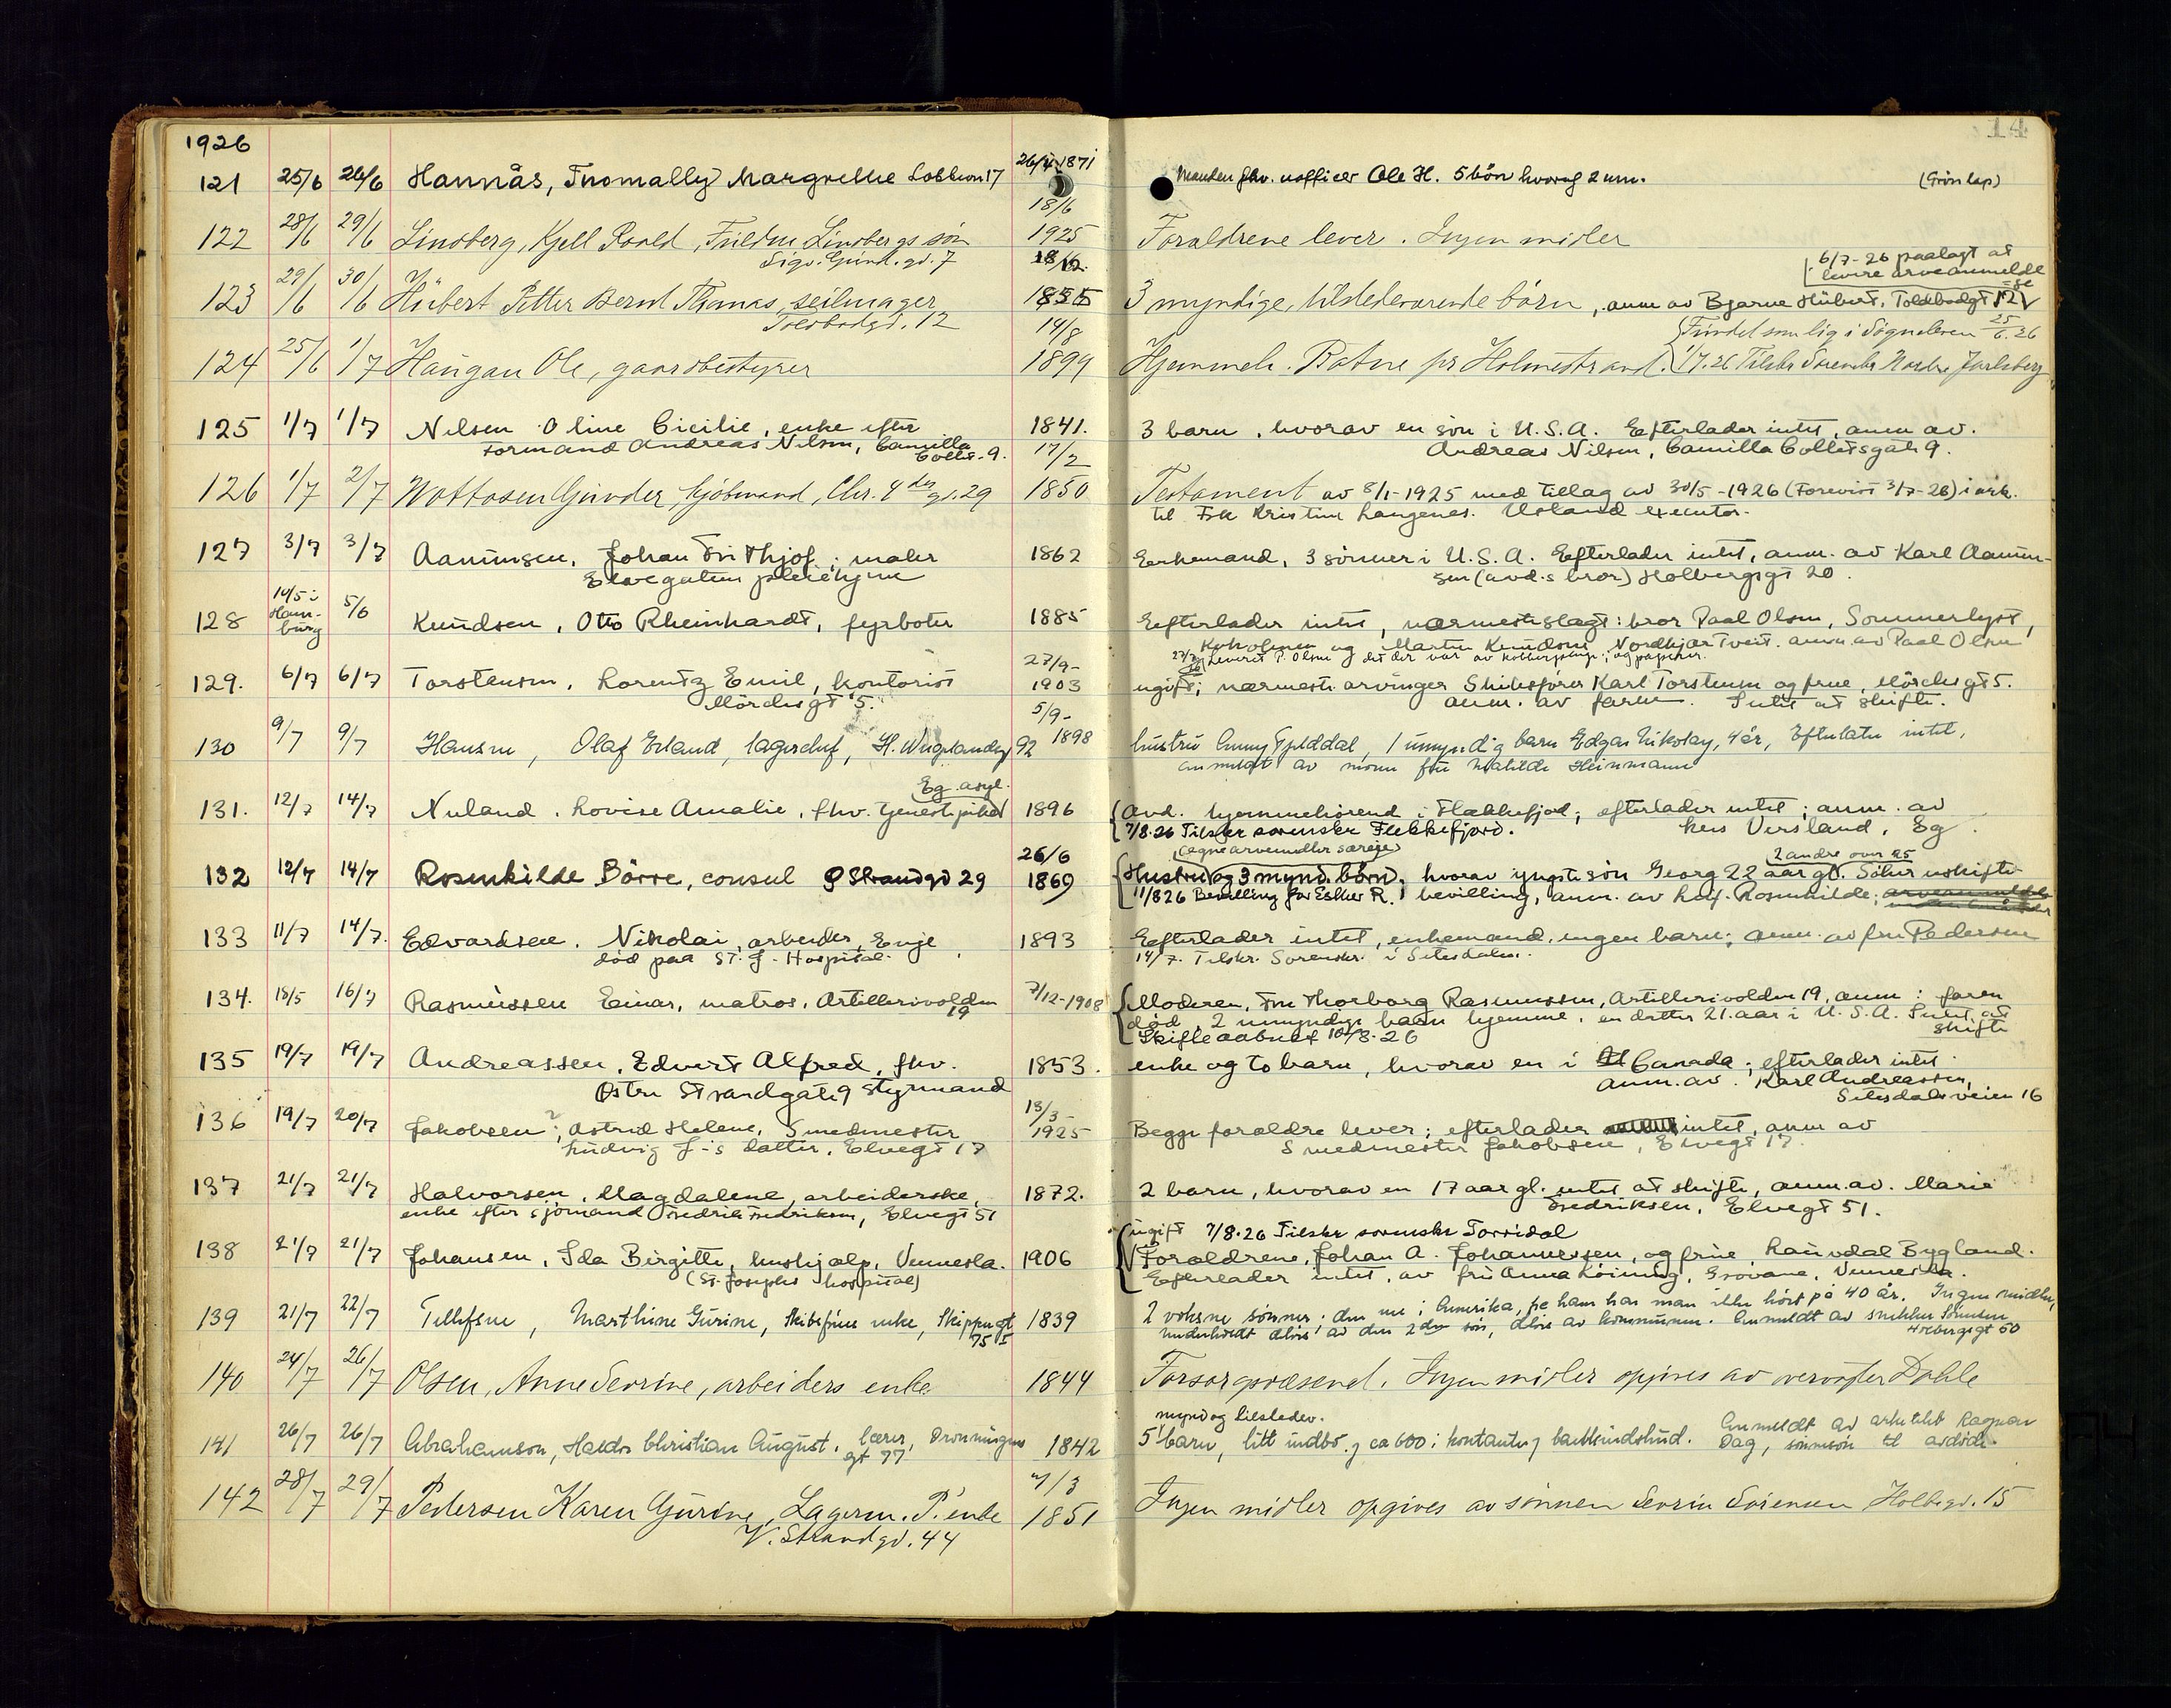 1926
14
121 25/6 26/6 Hannås, Margrethe 17 26/4 1871 Manden fhv. uofficer Ole H. 5 børn hvorav 2 um. (Grönlap)
122 28/6 29/6 Lindberg, Kjell Roald, Lindbergs søn 18/6 1925 Forældrene lever. Ingen midler
Sigv. Gund. gd. 7
6/7-26 paalagt at
levere arveanmeldelse
123 29/6 30/6 Hübert Petter Bernt Thomas, seilmager 18/12 3 myndige, tilstedeværende børn, anm av Bjarne Hübert, Toldbodgt 12
Toldbodgd. 12
Fundet som lig i Sögneelven 25/6.26
124 25/6 1/7 Haugan Ole, gaardbestyrer 14/8 1899 Hjemmeh. Botne pr Holmestrand. 1/7.26 Tilskr Sorenskr Nordre Jarlsberg
125 1/7 1/7 Nilsen Oline Cicilie, enke efter 1841. 3 barn, hvorav en søn i U.S.A. Efterlader intet, anm av.
Formand Andreas Nilsen, Camilla Colletts. 9. Andreas Nilsen, Camilla Colletsgate 9.
126 1/7 2/7 Wattosen Gunder, kjøbmand, Chr. 4 des gd. 29 17/2 1850 Testament av 8/1-1925 med tillæg av 30/5-1926 (Forevist 3/7-26) i ark.
til Frk Kristine Langenes. Usland executor.
127 3/7 3/7 Aanunsen, Johan Frithjof, maler 1862 Enkemand, 3 sønner i U.S.A. Efterlader intet, anm. av Karl Aanun-
Elvegatens pleiehjem sen (avd.s bror) Holbergsgt 20.
128 14/5 i Hamburg 5/6 Knudsen, Otto Rheinhardt, fyrbøter 1885 Efterlader intet, nærmeste slægt: bror Paal Olsen, Sommerlyst,
Kokolmen og Martin Knudsen, Tveit. anm. av Paal Olsen
Leveret P. Olsen det der var av og papirer.
129. 6/7 6/7 Torstensen, Lorentz Emil, kontorist 27/9-1903 ugift; nærmeste arvinger Skibsfører Karl Torstensen og frue, Mördesgt 5.
Mördesgt 5. anm. av faren. Intet at skifte.
130 9/7 9/7 Hansen, Olaf Erland, lagerchef, H. Wergelandsg 92 5/9-1898 hustru Anny Fjelddal, 1 umyndig barn Edgar Nikolay, 4 år, Efterlater intet,
anmeldt av fru Mathilde Heinmann
Eg. asyl.
131. 12/7 14/7 Nuland, Lovise Amalie, fhv. tjenestepike 1896 Avd. hjemmehørende i Flekkefjord; efterlader intet; anm. av
7/8.26 Tilskr sorenskr Flekkefjord. hers Versland, Eg.
(egne arvemidler særeie) 2 andre over 25
132 12/7 14/7 Rosenkilde Börre, consul Ø Strandgd 29 26/6 1869 Hustru og 3 mynd. børn, hvorav yngste søn Georg 22 aar gl. Söker uskifte-
11/8 26 Bevilling for Enker R. bevilling, anm. av Rosenkilde;
133 11/7 14/7. Edvardsen. Nikolai, arbeider, Evje 1893 Efterlader intet, enkemand, ingen barn; anm. av fru Pedersen
død paa St. J. Hospital. 14/7. Tilskr. Sorenskr. i Setesdalen.
134. 18/5 16/7 Rasmussen Einar, matros, Artillerivolden 19 7/12-1908 Moderen, Fru Thorborg Rasmussen, Artillerivolden 19, anm; faren
død, 2 umyndige barn hjemme, en datter 21 aar i U.S.A. Intet at skifte
Skifte aabnet 10/8.26
135 19/7 19/7 Andreassen, Edvert Alfred, fhv. 1853. enke og to barn, hvorav en i Canada; efterlader intet
Østre Strandgate 9 styrmand anm. av. Karl Andreassen,
Setesdalsveien 16
136 19/7 20/7 Jakobsen, Astrid Helene, Smedmester 13/3-1925 Begge forældre lever; efterlader intet, anm av
Ludvig J-s datter, Elvegt 17 Smedmester Jakobsen, Elvegt 17.
137 21/7 21/7 Halvorsen, Magdalene, arbeiderske, 1872. 2 barn, hvorav en 17 aar gl. intet at skifte, anm. av. Marie
enke efter sjømand Fredrik Fredriksen, Elvegt 51 Fredriksen, Elvegt 51.
ugift 7/8.26 Tilskr sorenskr Torridal
138 21/7 21/7 Johansen, Ida Birgitte, hushjælp, Vennesla. 1906 Forældrene, Johan A. Johannessen, og frue Bygland.
(St. Josephs hospital) Efterlader intet, av fru Anna Grovane, Vennesla.
139 21/7 22/7 Tellefsen, Marthine Gurine, Skibsføres enke, Skippergt 75 1839 2 voksne sønner: den ene i Amerika, fra ham har man ikke hørt på 40 år. Ingen midler,
underholdt dels av den 2den søn, dels av kommunen. Anmeldt av snekker Holbergsgt 50
140 24/7 26/7 Olsen, Anne Sevrine, arbeiders enke 1844 Forsorgsvæsenet. Ingen midler opgives av overvogter Dahle
mynd og tilstedev.
141 26/7 26/7 Abrahamson, Haldor Christian August, lærer, Dronningens gt 77 1842 5 barn, litt indbo, ca 600 i kontanter, bankindskud. Anmeldt av arkitekt Ragnar
Dag, til avdøde.
142 28/7 29/7 Pedersen Karen Gurine, Lagerm. P. enke 4/3 1851 Ingen midler opgives av sönnen Sevrin Sörensen Holbgd. 15
V. Strandgd. 44